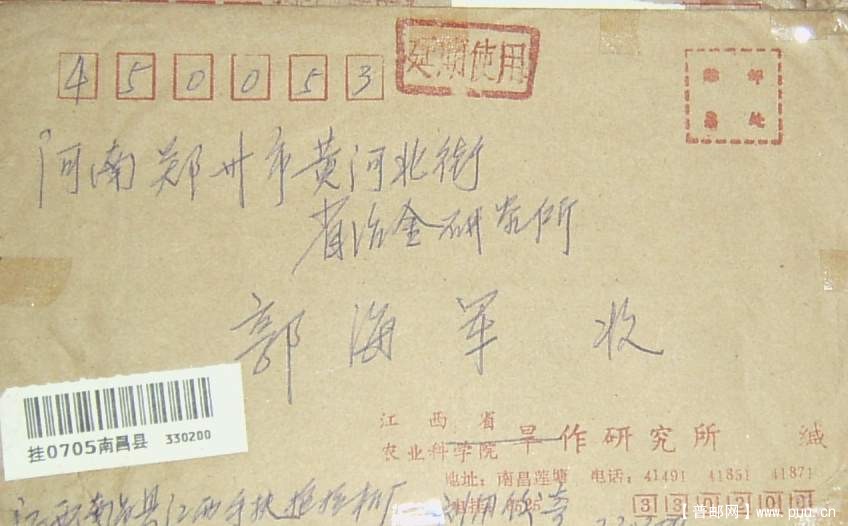 450053
延期使用
邮票
河南郑州市黄河北街
省冶金研究所
郭海军 收
挂0705南昌县 330200
江西省
农业科学院 旱作研究所 缄
地址: 南昌莲塘 电话: 41491 41851 41871
330200
江西南昌县江西手扶拖拉机厂
【普邮网】www.puyu.cn